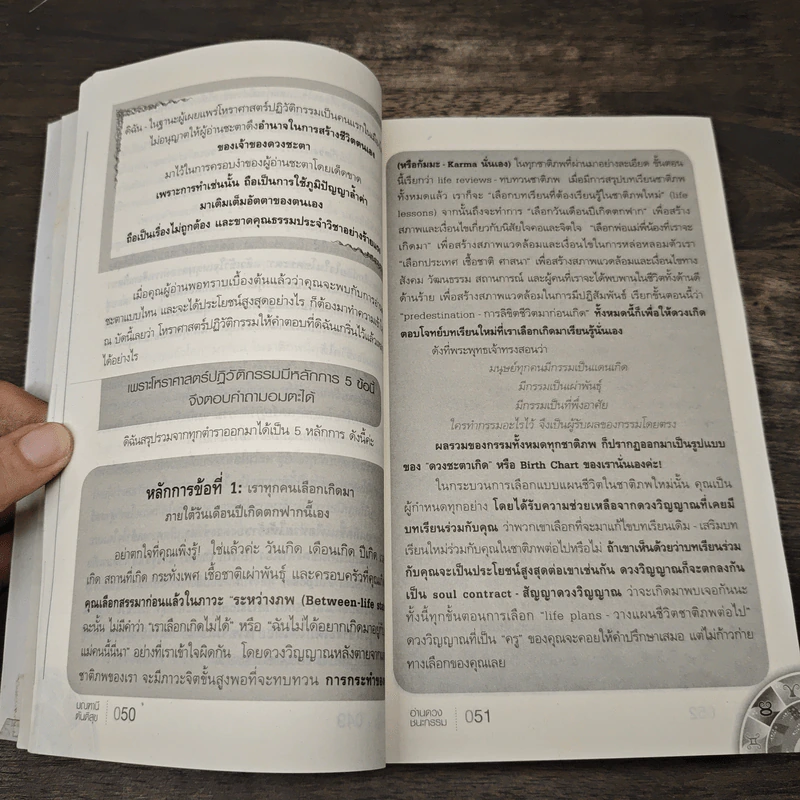 ดิฉัน - ในฐานะผู้เผยแพร่โหราศาสตร์ปฏิวัติกรรมเป็นคนแรกในเมือง
ไม่อนุญาตให้ผู้อ่านชะตาดึงอำนาจในการสร้างชีวิตตนเอง
ของเจ้าของดวงชะตา
มาไว้ในการครอบงำของผู้อ่านชะตาโดยเด็ดขาด
เพราะการทำเช่นนั้น ถือเป็นการใช้ภูมิปัญญาล้ำค่า
มาเติมเต็มอัตตาของตนเอง
ถือเป็นเรื่องไม่ถูกต้อง และขาดคุณธรรมประจำวิชาอย่างร้ายแรง
เมื่อคุณผู้อ่านพอทราบเบื้องต้นแล้วว่าคุณจะพบกับการ
ชะตาแบบไหน และจะได้ประโยชน์สูงสุดอย่างไร ก็ต้องมาทำความ
ณ บัดนี้เลยว่า โหราศาสตร์ปฏิวัติกรรมให้คำตอบที่ดิฉันเกริ่นไว้แล้ว
ได้อย่างไร
เพราะโหราศาสตร์ปฏิวัติกรรมมีหลักการ 5 ข้อนี้
จึงตอบคำถามอมตะได้
ดิฉันสรุปรวมจากทุกตำราออกมาได้เป็น 5 หลักการ ดังนี้ค่ะ
หลักการข้อที่ 1: เราทุกคนเลือกเกิดมา
ภายใต้วันเดือนปีเกิดตกฟากนี้เอง
อย่าตกใจที่คุณเพิ่งรู้! ใช่แล้วค่ะ วันเกิด เดือนเกิด ปีเกิด
เกิด สถานที่เกิด กระทั่งเพศ เชื้อชาติเผ่าพันธุ์ และครอบครัวที่คุณ
คุณเลือกสรรมาก่อนแล้วในภาวะ "ระหว่างภพ (Between-life
ฉะนั้น ไม่มีคำว่า "เราเลือกเกิดไม่ได้" หรือ "ฉันไม่ได้อยากเกิดมา
แม่คนนี้นี่นา" อย่างที่เราเข้าใจผิดกัน โดยดวงวิญญาณหลังตายจาก
ชาติภพของเรา จะมีภาวะจิตขั้นสูงพอที่จะทบทวน การกระทำของ
มณฑานี
ตันติสุข
050
(หรือกัมมะ - Karma นั่นเอง) ในทุกชาติภพที่ผ่านมาอย่างละเอียด ขั้นตอน
นี้เรียกว่า life reviews - ทบทวนชาติภพ เมื่อมีการสรุปบทเรียนชาติภพ
ทั้งหมดแล้ว เราก็จะ "เลือกบทเรียนที่ต้องเรียนรู้ในชาติภพใหม่" (life
lessons) จากนั้นถึงจะทำการ "เลือกวันเดือนปีเกิดตกฟาก" เพื่อสร้าง
สภาพและเงื่อนไขเกี่ยวกับนิสัยใจคอและจิตใจ "เลือกพ่อแม่พี่น้องที่เราจะ
เกิดมา" เพื่อสร้างสภาพแวดล้อมและเงื่อนไขในการหล่อหลอมตัวเรา
"เลือกประเทศ เชื้อชาติ ศาสนา" เพื่อสร้างสภาพแวดล้อมและเงื่อนไขทาง
สังคม วัฒนธรรม สถานการณ์ และผู้คนที่เราจะได้พบพานในชีวิตทั้งด้านดี
ด้านร้าย เพื่อสร้างสภาพแวดล้อมในการมีปฏิสัมพันธ์ เรียกขั้นตอนนี้ว่า
"predestination - การลิขิตชีวิตมาก่อนเกิด" ทั้งหมดนี้ก็เพื่อให้ดวงเกิด
ตอบโจทย์บทเรียนใหม่ที่เราเลือกเกิดมาเรียนรู้นั่นเอง
ดังที่พระพุทธเจ้าทรงสอนว่า
มนุษย์ทุกคนมีกรรมเป็นแดนเกิด
มีกรรมเป็นเผ่าพันธุ์
มีกรรมเป็นที่พึ่งอาศัย
ใครทำกรรมอะไรไว้ จึงเป็นผู้รับผลของกรรมโดยตรง
ผลรวมของกรรมทั้งหมดทุกชาติภพ ก็ปรากฏออกมาเป็นรูปแบบ
ของ "ดวงชะตาเกิด" หรือ Birth Chart ของเรานั่นเองค่ะ!
ในกระบวนการเลือกแบบแผนชีวิตในชาติภพใหม่นั้น คุณเป็น
ผู้กำหนดทุกอย่าง โดยได้รับความช่วยเหลือจากดวงวิญญาณที่เคยมี
บทเรียนร่วมกับคุณ ว่าพวกเขาเลือกที่จะมาแก้ไขบทเรียนเดิม - เสริมบท
เรียนใหม่ร่วมกับคุณในชาติภพต่อไปหรือไม่ ถ้าเขาเห็นด้วยว่าบทเรียนร่วม
กับคุณจะเป็นประโยชน์สูงสุดต่อเขาเช่นกัน ดวงวิญญาณก็จะตกลงกัน
เป็น soul contract - สัญญาดวงวิญญาณ ว่าจะเกิดมาพบเจอกันนะ
ทั้งนี้ทุกขั้นตอนการเลือก "life plans - วางแผนชีวิตชาติภพต่อไป"
ดวงวิญญาณที่เป็น "ครู" ของคุณจะคอยให้คำปรึกษาเสมอ แต่ไม่ก้าวก่าย
ทางเลือกของคุณเลย
อ่านดวง
ชนะกรรม
051